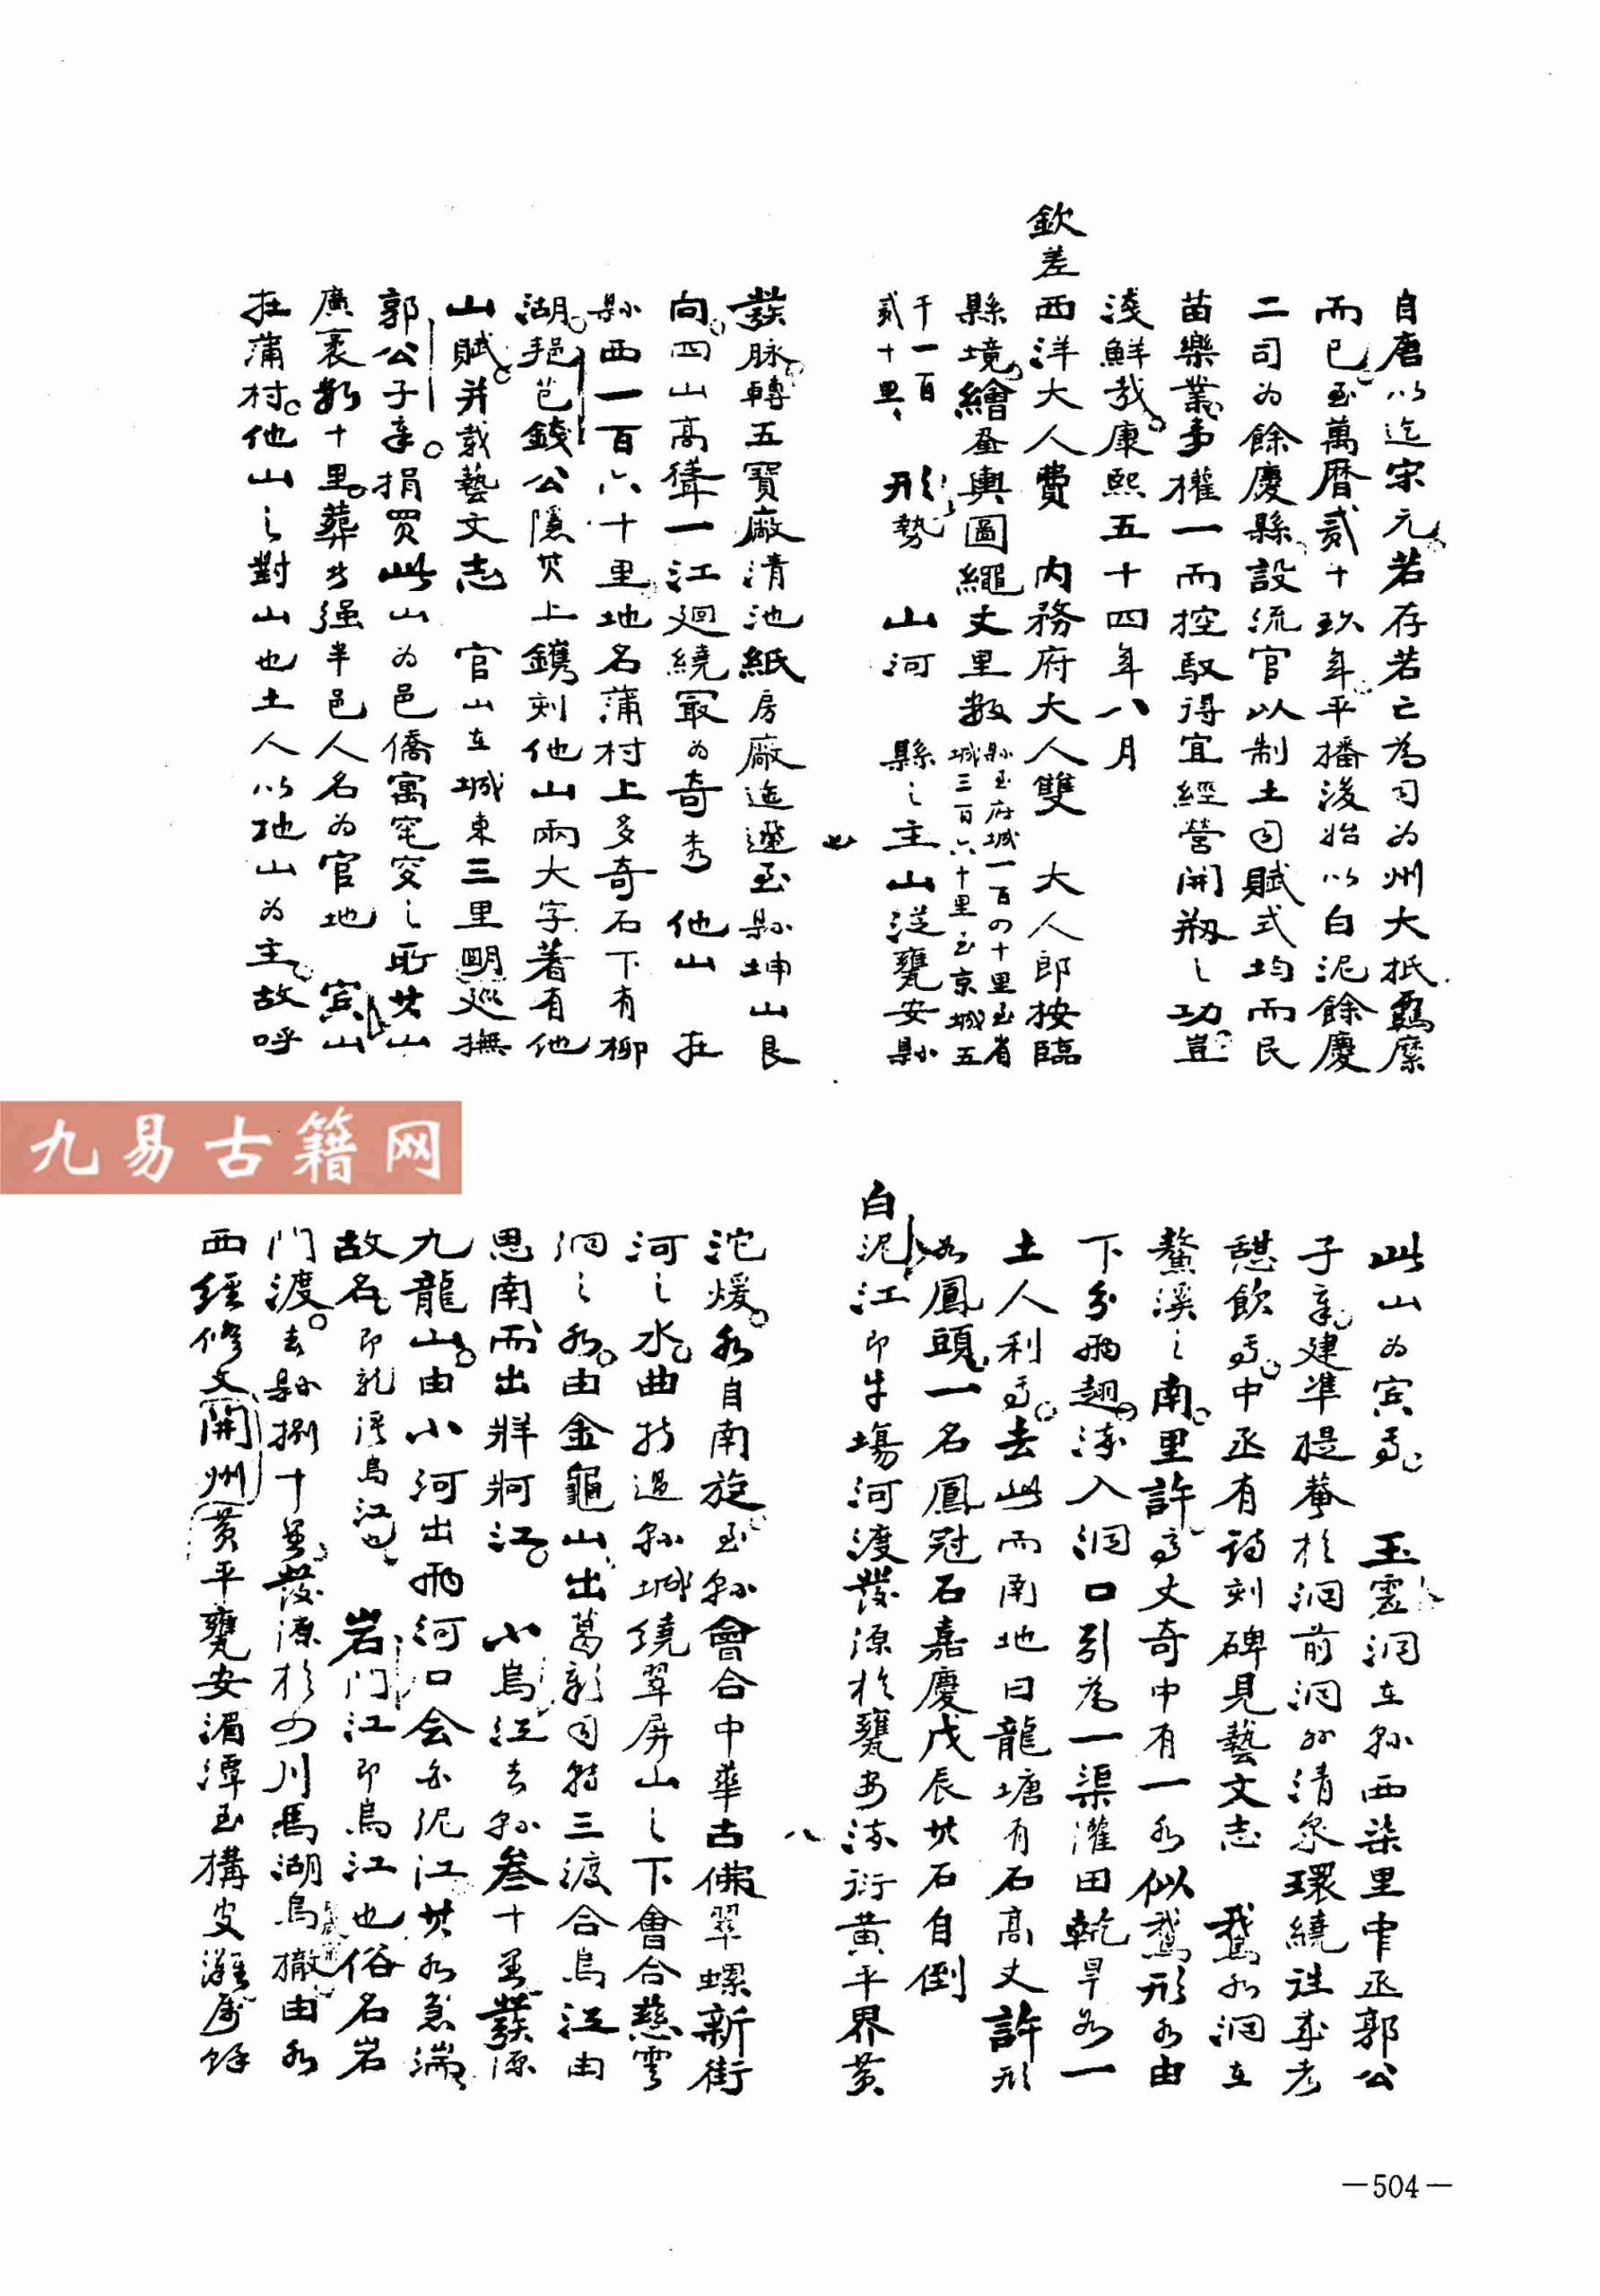 自唐以迄宋元若存若亡為司為州大抵羈縻
而已至萬曆貳十玖年平播後始以白泥餘慶
二司為餘慶縣設流官以制土司賦式均而民
苗樂業事權一而控馭得宜經營開剏之功豈
淺鮮哉康熙五十四年八月
欽差西洋大人費 內務府大人雙 大人郎按臨
縣境繪畫輿圖繩丈里数縣至府城一百四十里至省城三百六十里至京城五
千一百貳十里 形勢 山河 縣之主山從甕安縣
七
發脉轉五寶廠清池紙房廠迤邐至縣坤山艮
向四山高聳一江廻繞㝡為奇秀 他山 在
縣西一百六十里地名蒲村上多奇石下有柳
湖邑錢公隱其上鐫刻他山兩大字著有他
山賦并載藝文志 官山在城東三里明巡撫
郭公子章捐買此山為邑僑寓窀穸之所其山
廣袤數十里葬者强半邑人名為官地 賓山
在蒲村他山之對山也土人以他山為主故呼
此山為賓焉 玉靈洞在縣西柒里中丞郭公
子章建準提菴於洞前洞外清泉環繞往来者
憩飲焉中丞有詩刻碑見藝文志 鵞水洞在
鰲溪之南里許高丈奇中有一水似鵞形水由
下分兩翅流入洞口引為一渠灌田乾旱如一
土人利焉去此而南地曰龍塘有石高丈許形
如鳳頭一名鳳冠石嘉慶戊辰其石自倒
白泥江即牛塲河渡發源於甕安流衍黄平界黄
八
沱煖水自南旋至縣會合中華古佛翠螺新街
河之水曲折過縣城繞翠屏山之下會合慈雲
洞之水由金龜山出葛彰司轄三渡合烏江由
思南而出牂牁江 小烏江去縣叁十里發源
九龍山由小河出兩河口会白泥江其水急湍
故名即亂流烏江也 岩门江即烏江也俗名岩
门渡去縣捌十里發源於四川馬湖烏撒由水
西經修文開州黄平甕安湄潭至構皮灘為餘
九易古籍网
—504—